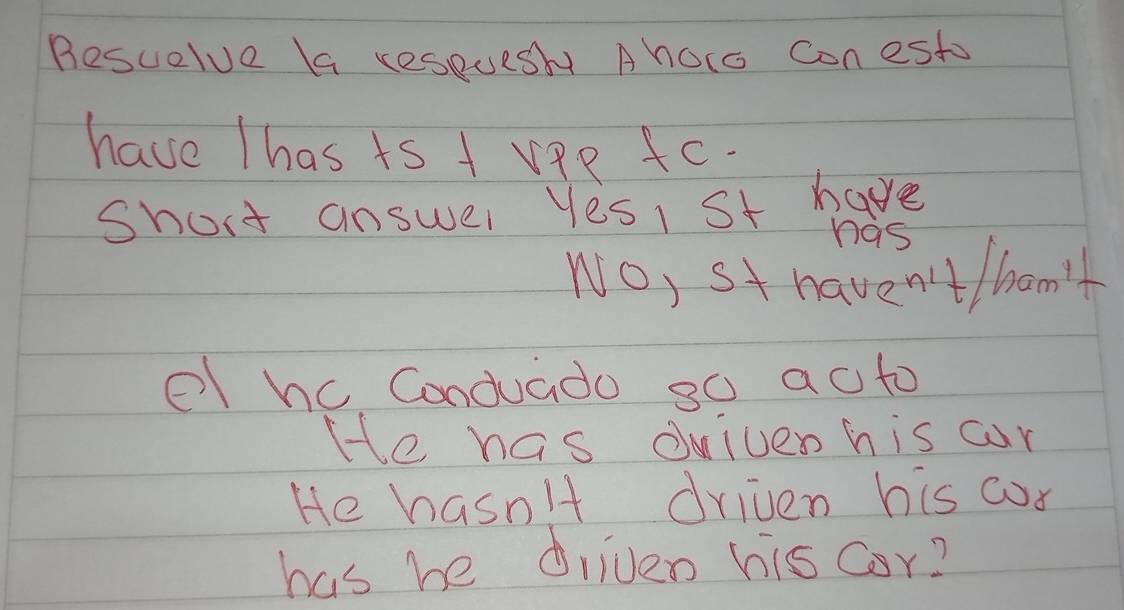 Resuelve la respuesta Ahora con esto
have / has + s + vpp + c.
Short answer Yes, s + have
has
No, s + haven't / hasn't
él ha Conducido so auto
He has driven his car
He hasn't driven his car
has he driven his car?